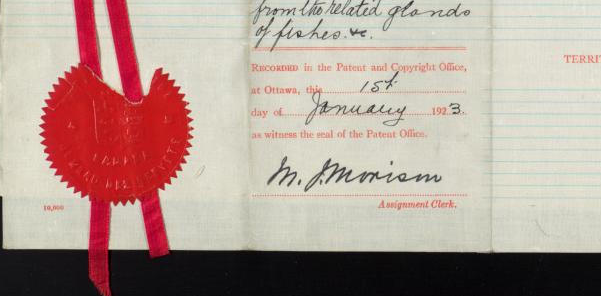 from the related glands
of fishes. &c.
RECORDED in the Patent and Copyright Office,
at Ottawa, this 1st
day of January 1923.
as witness the seal of the Patent Office.
M. J. Morison
Assignment Clerk.
TERRI
CANADA
10,000